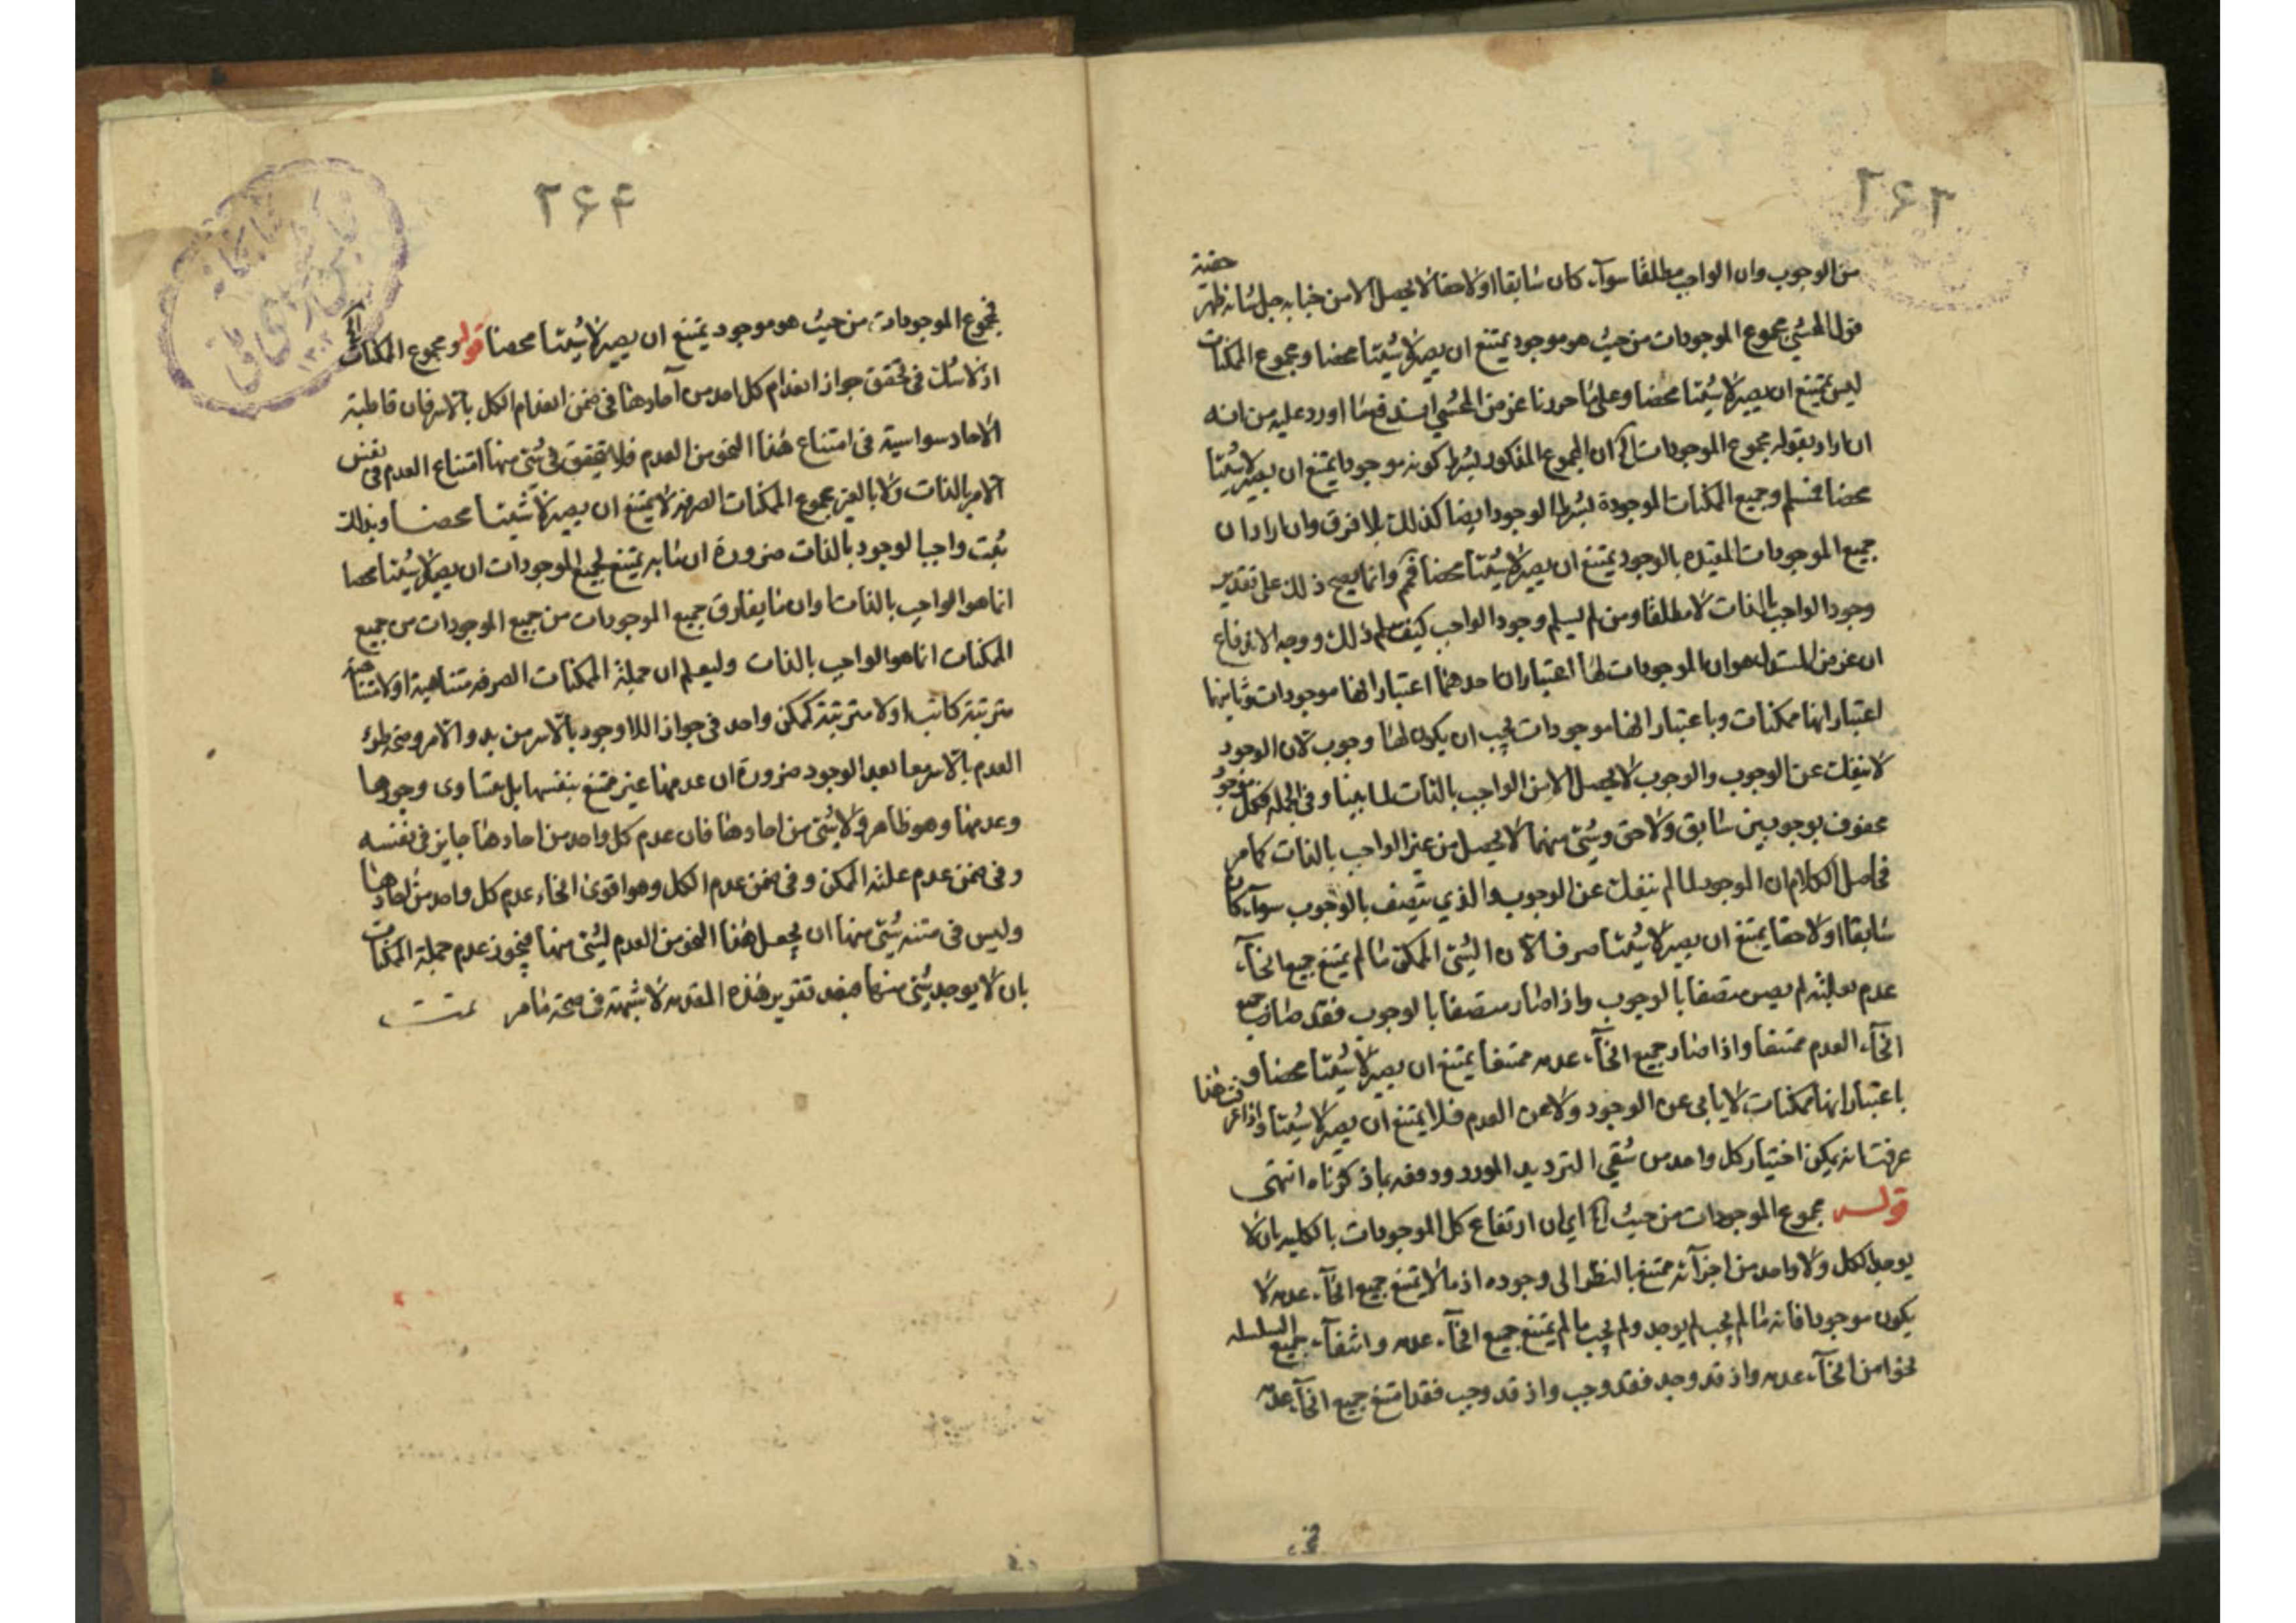 ۲۶۳
من الوجوب وان الواجب مطلقا سوآء كان سابقا او لاحقا لا يحصل الا من جنابه جل شانه ظهر حقية
قول المحشي مجموع الموجودات من حيث هو موجود يمتنع ان يصير لا شيئا محضا ومجموع الممكنات
ليس يمتنع ان يصير لا شيئا محضا وعلى ما حررنا غرض المحشي اندفع ما اورد عليه من انه
ان اراد بقوله مجموع الموجودات الخ ان المجموع المذكور بشرط كونه موجودا يمتنع ان يصير لا شيئا
محضا فمسلم وجميع الممكنات الموجودة بشرط الوجود ايضا كذلك بلا فرق وان اراد ان
جميع الموجودات المقيده بالوجود يمتنع ان يصير لا شيئا محضا فمم وانما يصح ذلك على تقدير
وجود الواجب بالذات لا مطلقا ومن لم يسلم وجود الواجب كيف يسلم ذلك ووجه الاندفاع
ان غرض المستدل هو ان الموجودات لها اعتباران احدهما اعتبار انها موجودات وثانيها
اعتبار انها ممكنات وباعتبار انها موجودات يجب ان يكون لها وجوب لان الوجود
لا ينفك عن الوجوب والوجوب لا يحصل الا من الواجب بالذات لما بينا وفي الجمله فكل موجود
محفوف بوجوبين سابق ولاحق وشئ منهما لا يحصل من غير الواجب بالذات كما مر
فحاصل الكلام ان الموجود لما لم ينفك عن الوجوب والذي يتصف بالوجوب سوآء كان
سابقا او لاحقا يمتنع ان يصير لا شيئا صرفا لان الشئ الممكن ما لم يمتنع جميع انحآء
عدمه لم يصر متصفا بالوجوب واذا صار متصفا بالوجوب فقد صار جميع
انحآء العدم ممتنعا واذا صار جميع انحآء عدمه ممتنعا يمتنع ان يصير لا شيئا محضا و
باعتبار انها ممكنات لا يابى عن الوجود ولا عن العدم فلا يمتنع ان يصير لا شيئا واذا عرفت هذا
عرفت انه يمكن اختيار كل واحد من شقي الترديد المورد ودفعه بما ذكرناه انتهى
قوله مجموع الموجودات من حيث الخ اي ان ارتفاع كل الموجودات بالكليه بان لا
يوجد الكل ولا واحد من اجزآئه ممتنع بالنظر الى وجوده اذ ما لا يمتنع جميع انحآء عدمه لا
يكون موجودا فانه ما لم يجب لم يوجد ولم يجب ما لم يمتنع جميع انحآء عدمه وانتفآء جميع السلسله
نحو من انحآء عدمه واذ قد وجد فقد وجب واذ قد وجب فقد امتنع جميع انحآء عدمه
۲۶۴
فمجموع الموجودات من حيث هو موجود يمتنع ان يصير لا شيئا محضا قوله ومجموع الممكنات الخ
اذ لا شك في تحقق جواز انعدام كل احد من آحادها في ضمن انعدام الكل بالاسر فان قاطبة
الاحاد سواسية في امتناع هذا النحو من العدم فلا يتحقق في شئ منها امتناع العدم في نفس
الامر بالذات ولا بالغير مجموع الممكنات الصرفه لا يمتنع ان يصير لا شيئا محضا وبذلك
ثبت واجب الوجود بالذات ضرورة ان ما به يمتنع لجميع الموجودات ان يصير لا شيئا محضا
انما هو الواجب بالذات وان ما يفارق جميع الموجودات من جميع الموجودات من جميع
الممكنات انما هو الواجب بالذات وليعلم ان جملة الممكنات الصرفه متناهية او لا متناهية
مترتبة كانت او لا مترتبة كممكن واحد في جواز اللا وجود بالاسر من بدو الامر وصحة طرئ
العدم بالاسر معا بعد الوجود ضرورة ان عدمها غير ممتنع بنفسها بل يتساوى وجودها
وعدمها وهو ظاهر ولا بشئ من احادها فان عدم كل واحد من احادها جايز في نفسه
وفي ضمن عدم علته الممكن وفي ضمن عدم الكل وهو اقوى انحاء عدم كل واحد من احادها
وليس في منته شئ منها ان يجعل هذا النحو من العدم لشئ منها فيجوز عدم جملة الممكنات
بان لا يوجد شئ منها فبعد تقرير هذه المقدمه لا شبهة في صحة ما مر تمت